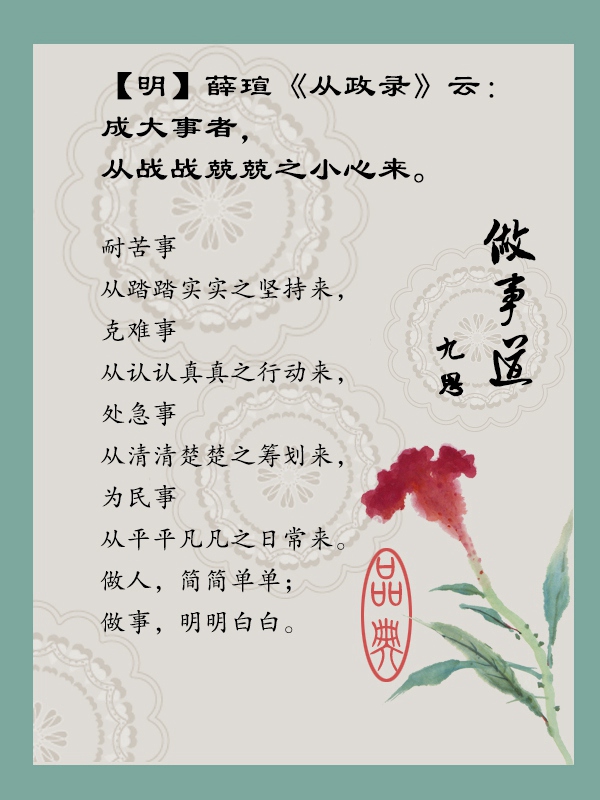 【明】薛瑄《从政录》云：
成大事者，
从战战兢兢之小心来。
耐苦事
从踏踏实实之坚持来，
克难事
从认认真真之行动来，
处急事
从清清楚楚之筹划来，
为民事
从平平凡凡之日常来。
做人，简简单单；
做事，明明白白。
做事道
九思
品典